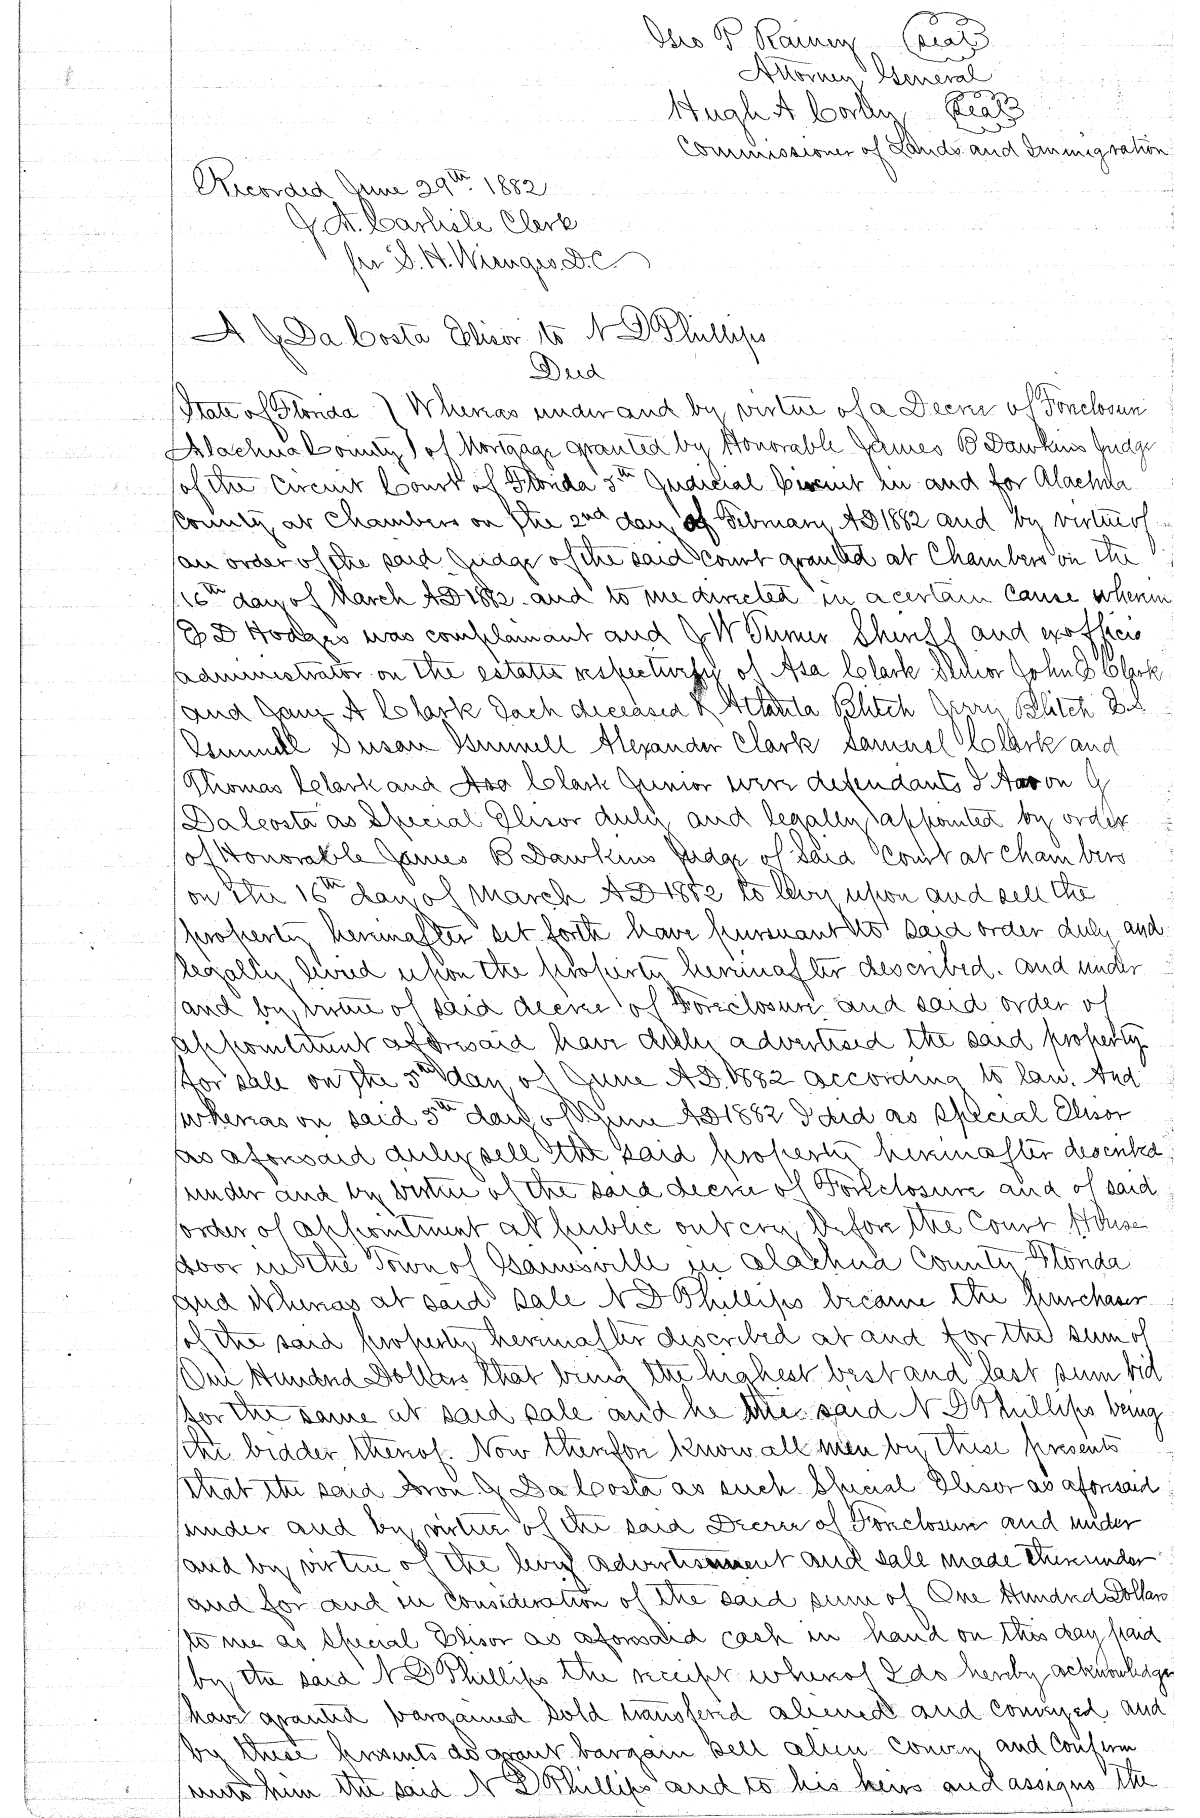 Geo P Rainey (Seal)
Attorney General
Hugh A Corley (Seal)
Commissioner of Lands and Immigration
Recorded June 29th 1882
J. A. Carlisle Clerk
per S. H. Wienges D.C.
A J Da Costa Elisor to N D Phillips
Deed
State of Florida ) Whereas under and by virtue of a Decree of Foreclosure
Alachua County ) of Mortgage granted by Honorable James B Dawkins Judge
of the Circuit Court of Florida 5th Judicial Circuit in and for Alachua
County at Chambers on the 2nd day of February AD 1882 and by virtue of
an order of the said Judge of the said court granted at Chambers on the
16th day of March AD 1882 and to me directed in a certain cause wherein
J D Hodges was complainant and J W Turner Sheriff and exofficio
administrator on the estates respectively of Asa Clark Senior John C Clark
and Jane A Clark Each deceased & Atlanta Blitch Jerry Blitch
Gunnell Susan Gunnell Alexander Clark Samuel Clark and
Thomas Clark and Asa Clark Junior were defendants I Aaron J
DaCosta as Special Elisor duly and legally appointed by order
of Honorable James B Dawkins Judge of Said Court at Chambers
on the 16th day of March AD 1882 to levy upon and sell the
property hereinafter set forth have pursuant to said order duly and
legally levied upon the property hereinafter described. and under
and by virtue of said decree of Foreclosure and said order of
appointment aforesaid have duly advertised the said property
for sale on the 5th day of June A.D. 1882 according to law. And
whereas on said 5th day of June AD 1882 I did as Special Elisor
as aforesaid duly sell the said property hereinafter described
under and by virtue of the said decree of Foreclosure and of said
order of appointment at public outcry before the Court House
door in the Town of Gainesville in Alachua County Florida
and Whereas at said sale N D Phillips became the purchaser
of the said property hereinafter described at and for the sum of
One Hundred Dollars that being the highest best and last sum bid
for the same at said sale and he the said N D Phillips being
the bidder thereof. Now therefore know all men by these presents
that the said Aron J Da Costa as such Special Elisor as aforesaid
under and by virtue of the said Decree of Foreclosure and under
and by virtue of the levy advertisement and sale made thereunder
and for and in consideration of the said sum of One Hundred Dollars
to me as Special Elisor as aforesaid cash in hand on this day paid
by the said N D Phillips the receipt whereof I do hereby acknowledge
have granted bargained sold transfered aliened and conveyed and
by these presents do grant bargain sell alien convey and confirm
unto him the said N D Phillips and to his heirs and assigns the